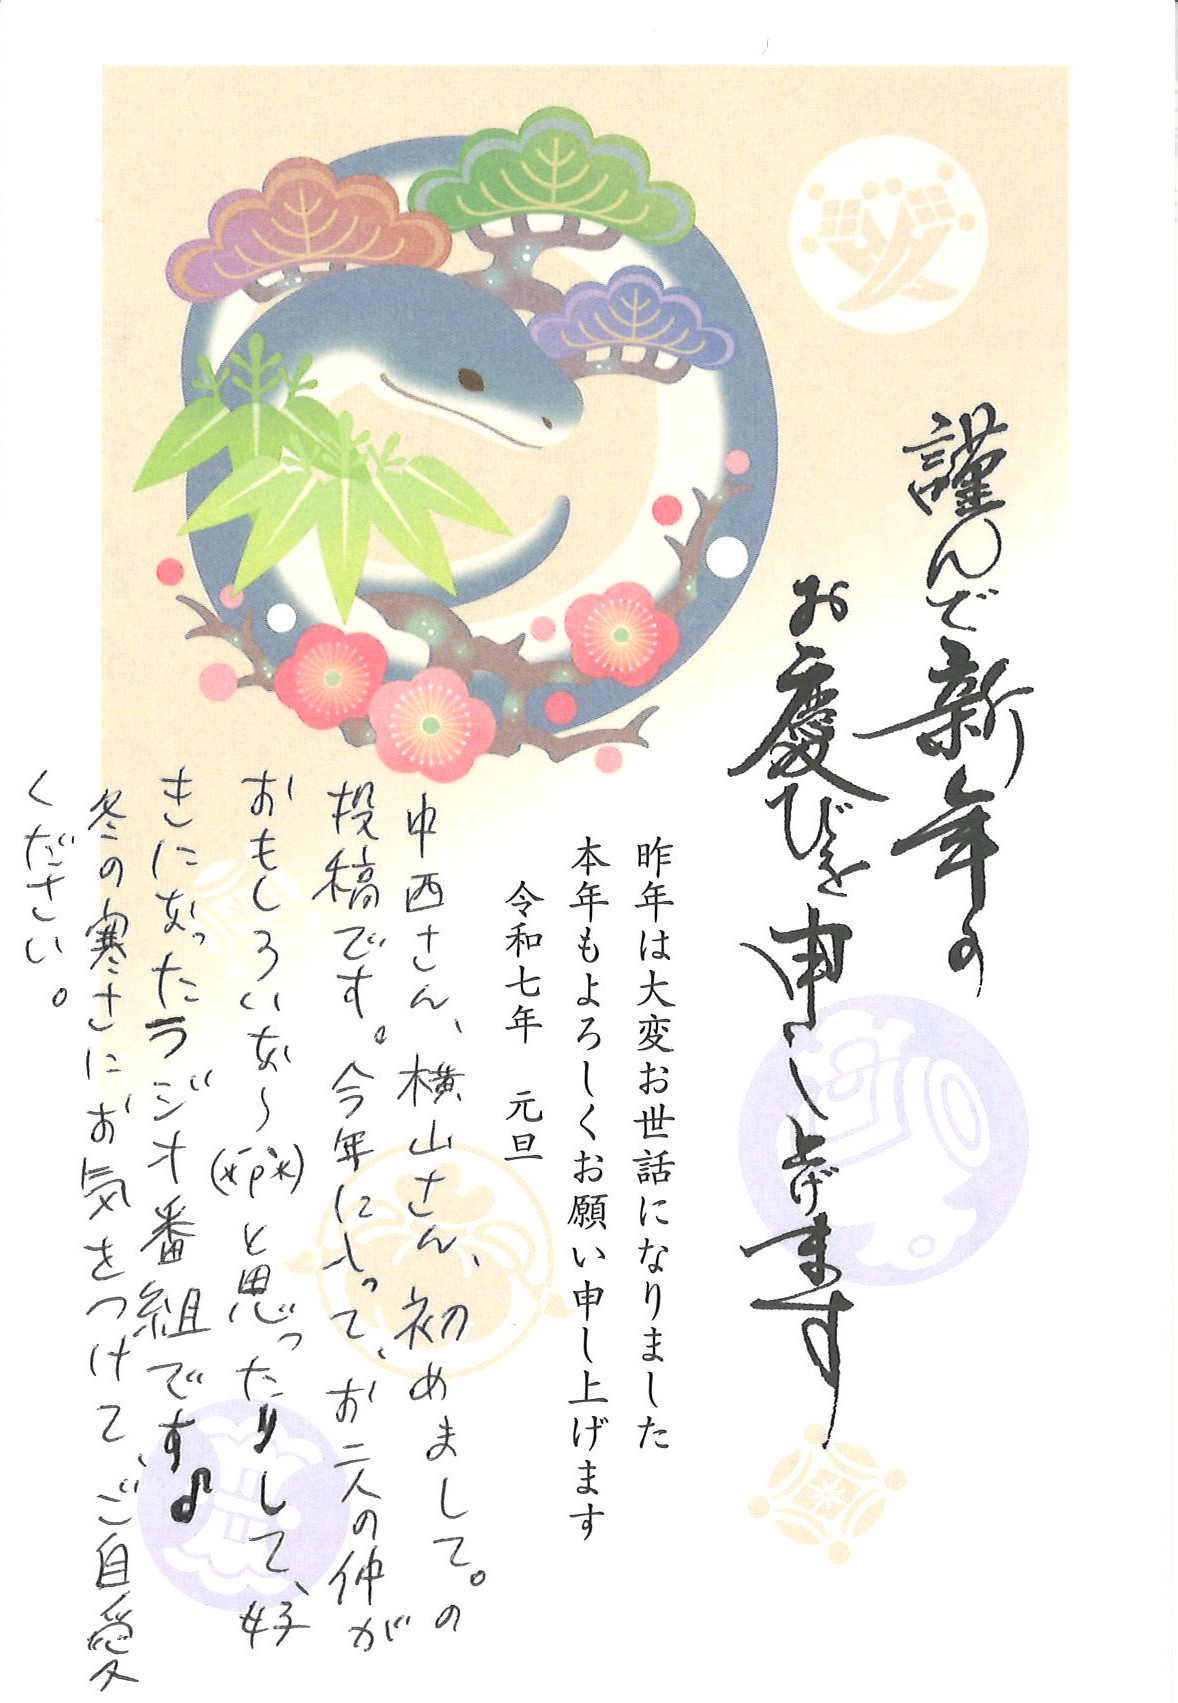 謹んで新年の
お慶びを申し上げます
昨年は大変お世話になりました
本年もよろしくお願い申し上げます
令和七年 元旦
中西さん、横山さん、初めまして。の
投稿です。今年に入って、お二人の仲が
おもしろいな〜(*´p`*)と思ったりして、好
きになったラジオ番組です♪
冬の寒さにお気をつけて、ご自愛
ください。